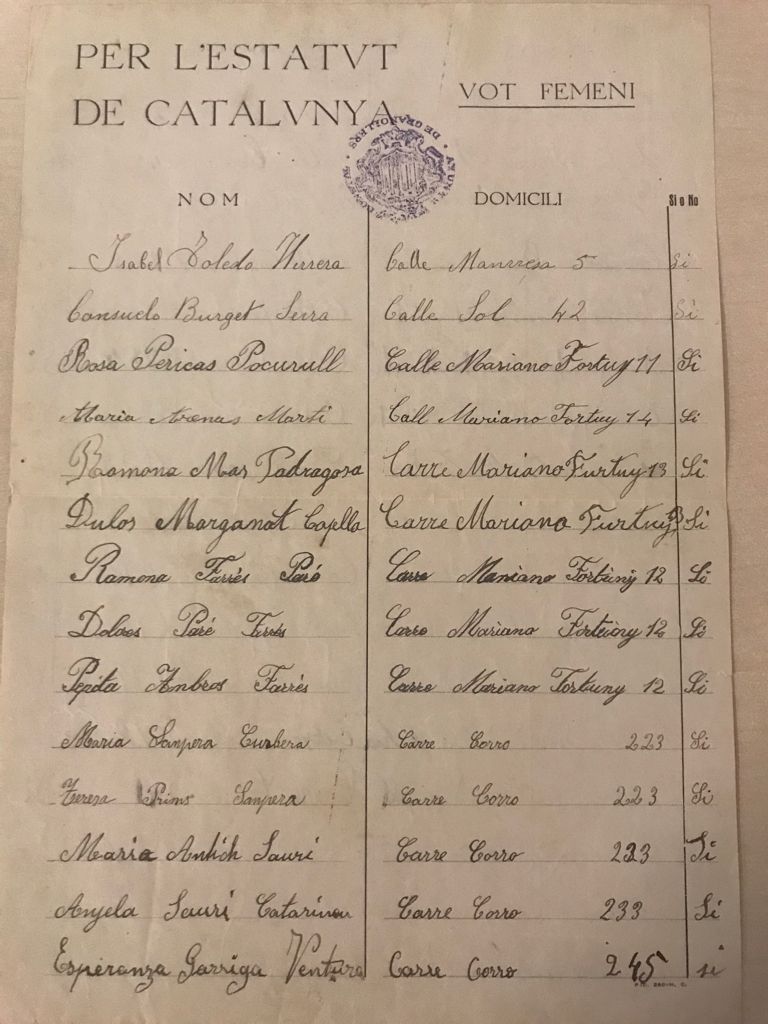 PER L'ESTATVT
DE CATALVNYA
VOT FEMENI
DE GRANOLLERS
NOM DOMICILI Si o No
Isabel Toledo Herrera Calle Manresa 5 Si
Consuelo Burget Serra Calle Sol 42 Si
Rosa Pericas Pocurull Calle Mariano Fortuy 11 Si
Maria Arenas Marti Call Mariano Fortuy 14 Si
Ramona Mas Padragosa Carre Mariano Furtuy 13 Si
Dulos Marganat Capella Carre Mariano Furtuy 13 Si
Ramona Farrés Paré Carre Mariano Fortuny 12 Si
Dolores Paré Farrés Carre Mariano 12 Si
Pepita Anbros Farrés Carre Mariano Fortuny 12 Si
Maria Sanpera Curbera Carre Corro 223 Si
Teresa Prims Sanpera Carre Corro 223 Si
Maria Antich Saurí Carre Corro 223 Si
Anjela Saurí Carre Corro 233 Si
Esperanza Garriga Ventura Carre Corro 245 si